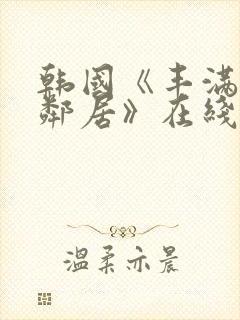 韩国《丰满
邻居》在线
温柔亦晨